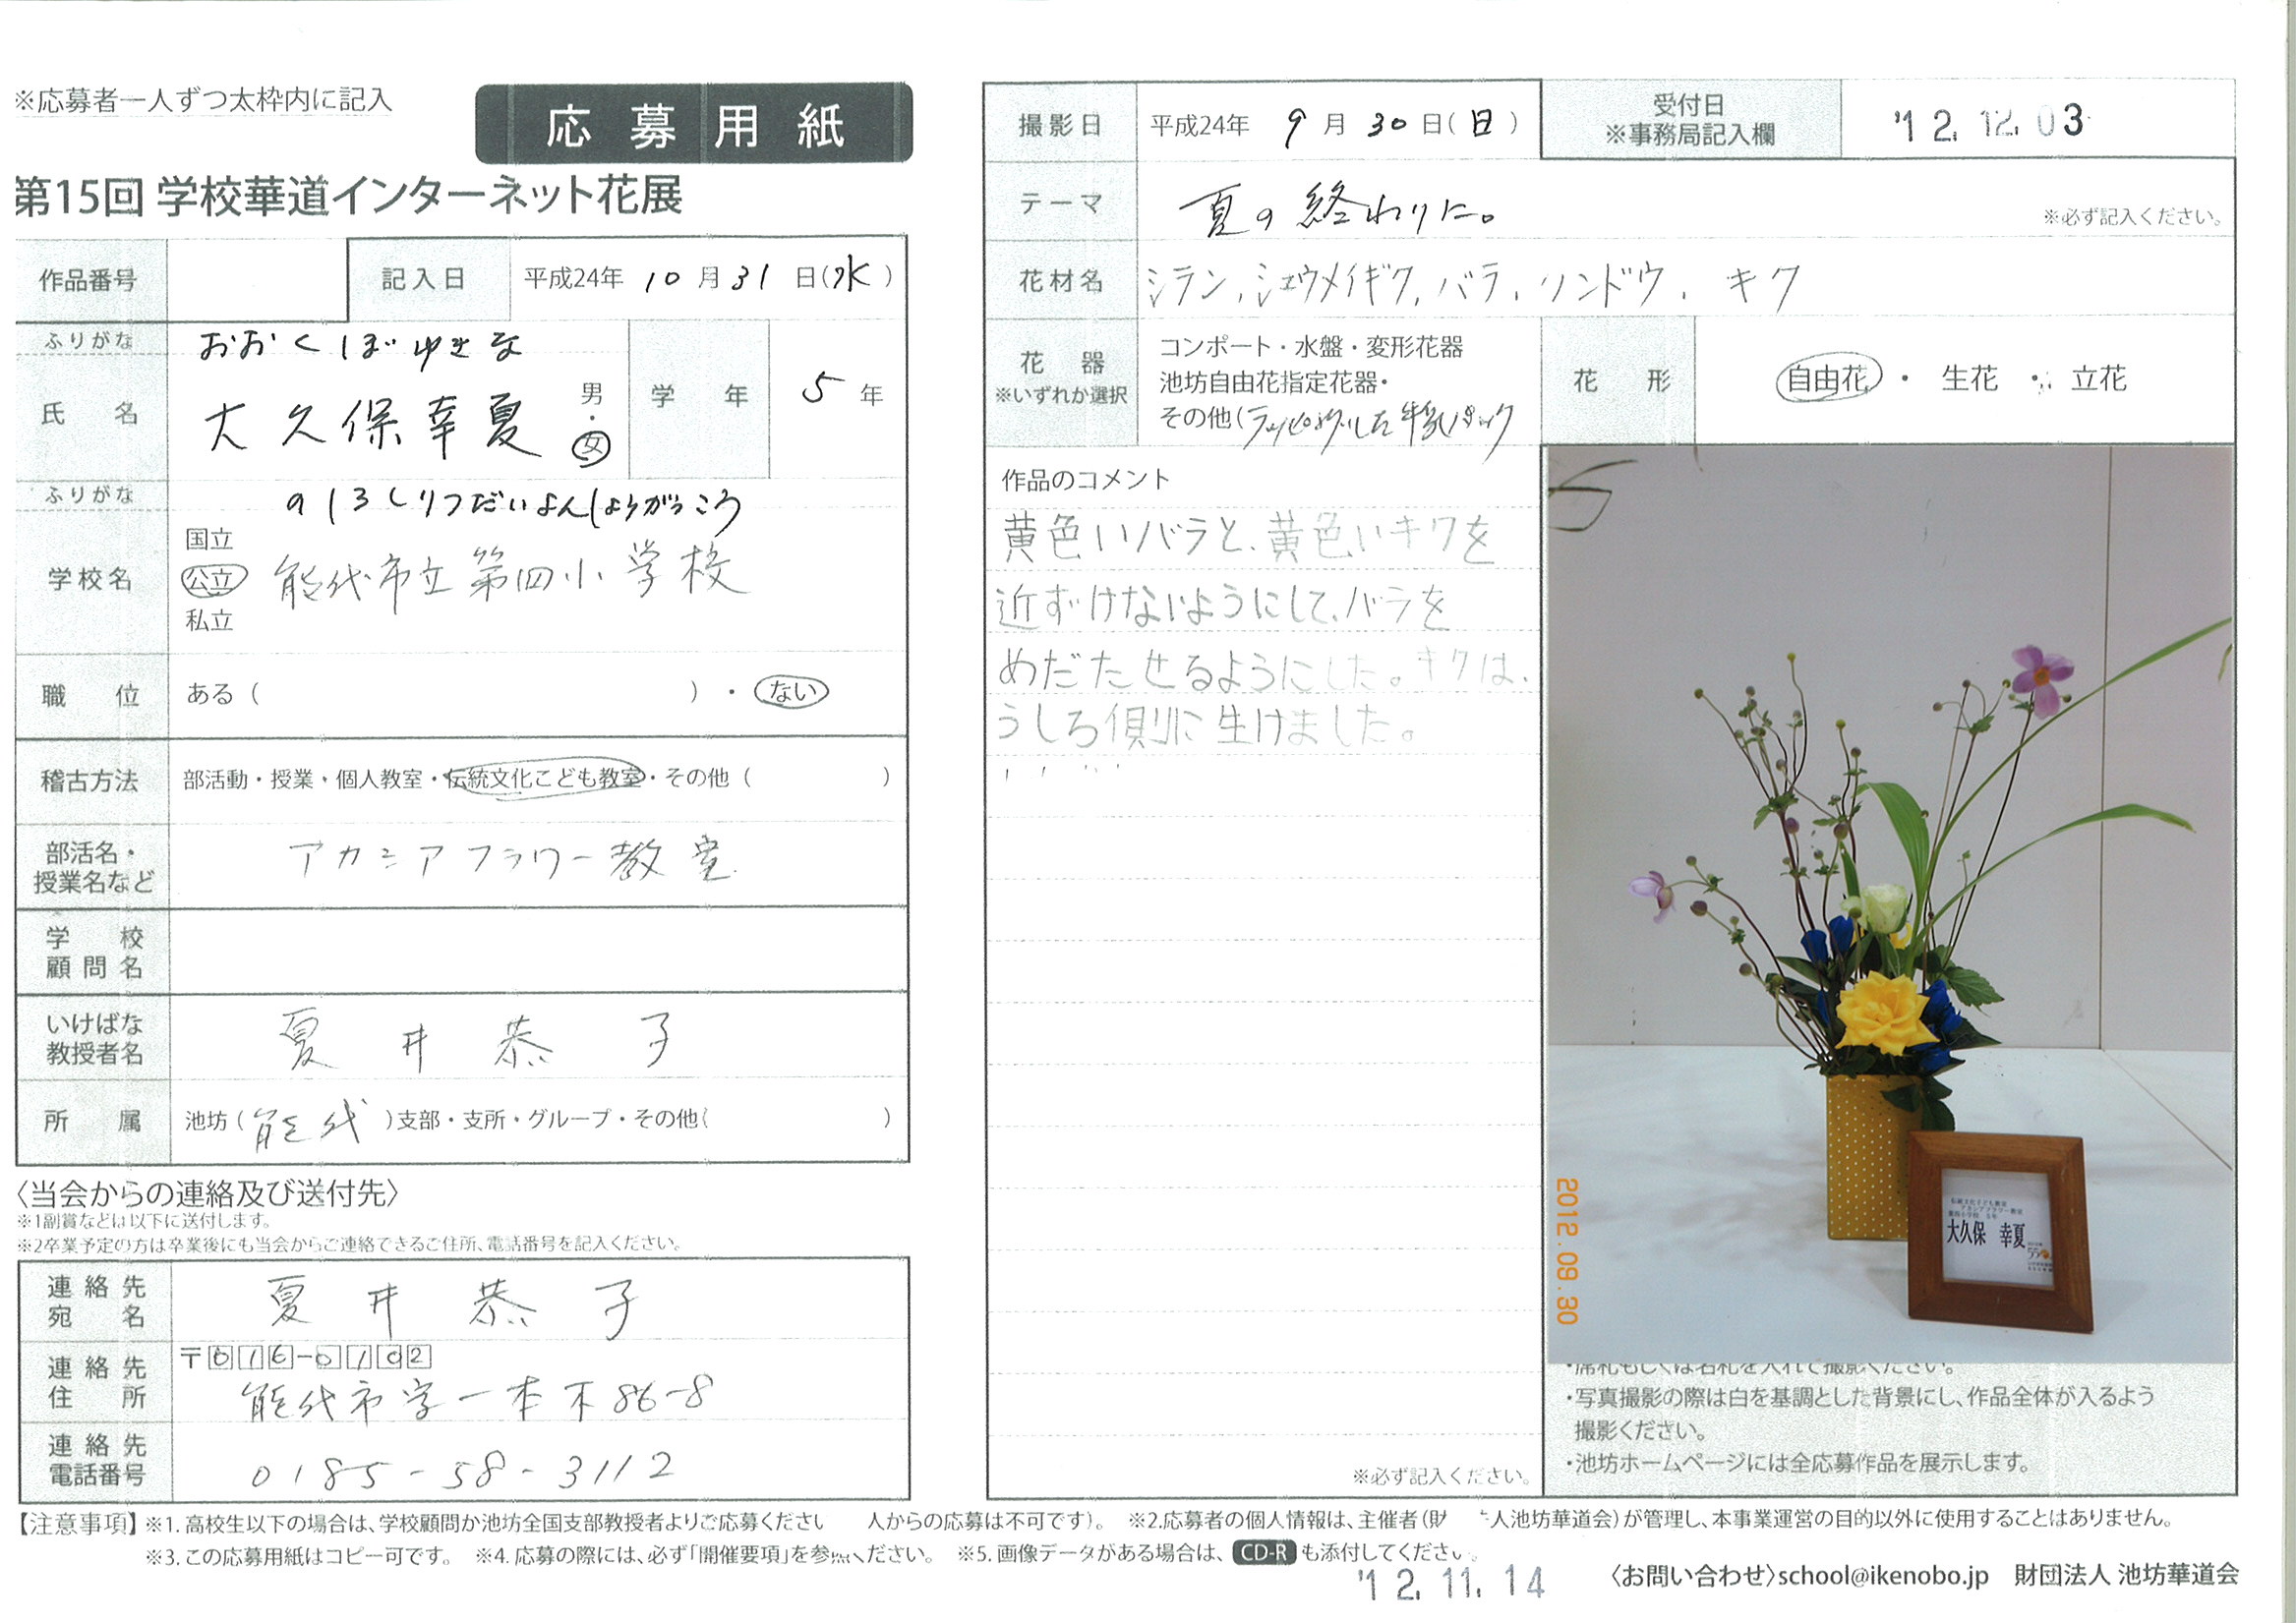 ※応募者一人ずつ太枠内に記入
応募用紙
第15回 学校華道インターネット花展
作品番号
記入日 平成24年 10月31日(水)
ふりがな おおくぼゆきな
氏名 大久保幸夏 男・女
学年 5年
ふりがな のしろしりつだいよんしょうがっこう
学校名 国立 公立 私立 能代市立第四小学校
職位 ある( )・ない
稽古方法 部活動・授業・個人教室・伝統文化こども教室・その他( )
部活名・授業名など アカシアフラワー教室
学校顧問名
いけばな教授者名 夏井恭子
所属 池坊(能代)支部・支所・グループ・その他( )
〈当会からの連絡及び送付先〉
※1副賞などは以下に送付します。
※2卒業予定の方は卒業後にも当会からご連絡できるご住所、電話番号を記入ください。
連絡先宛名 夏井恭子
連絡先住所 〒016-0102
能代市字一本木86-8
連絡先電話番号 0185-58-3112
撮影日 平成24年 9月30日(日)
受付日 ※事務局記入欄 '12.12.03
テーマ 夏の終わりに。 ※必ず記入ください。
花材名 シラン,シュウメイギク,バラ,リンドウ,キク
花器 ※いずれか選択
コンポート・水盤・変形花器
池坊自由花指定花器・
その他(ラッピングした牛乳パック
花形 自由花・生花・立花
作品のコメント
黄色いバラと、黄色いキクを
近ずけないようにして、バラを
めだたせるようにした。キクは、
うしろ側に生けました。
※必ず記入ください。
大久保 幸夏
2012.09.30
・席札もしくは名札を入れて撮影ください。
・写真撮影の際は白を基調とした背景にし、作品全体が入るよう
撮影ください。
・池坊ホームページには全応募作品を展示します。
【注意事項】※1.高校生以下の場合は、学校顧問か池坊全国支部教授者よりご応募ください 人からの応募は不可です)。 ※2.応募者の個人情報は、主催者(財 人池坊華道会)が管理し、本事業運営の目的以外に使用することはありません。
※3.この応募用紙はコピー可です。 ※4.応募の際には、必ず「開催要項」を参照ください。 ※5.画像データがある場合は、CD-Rも添付してください。
'12.11.14
〈お問い合わせ〉school@ikenobo.jp 財団法人 池坊華道会